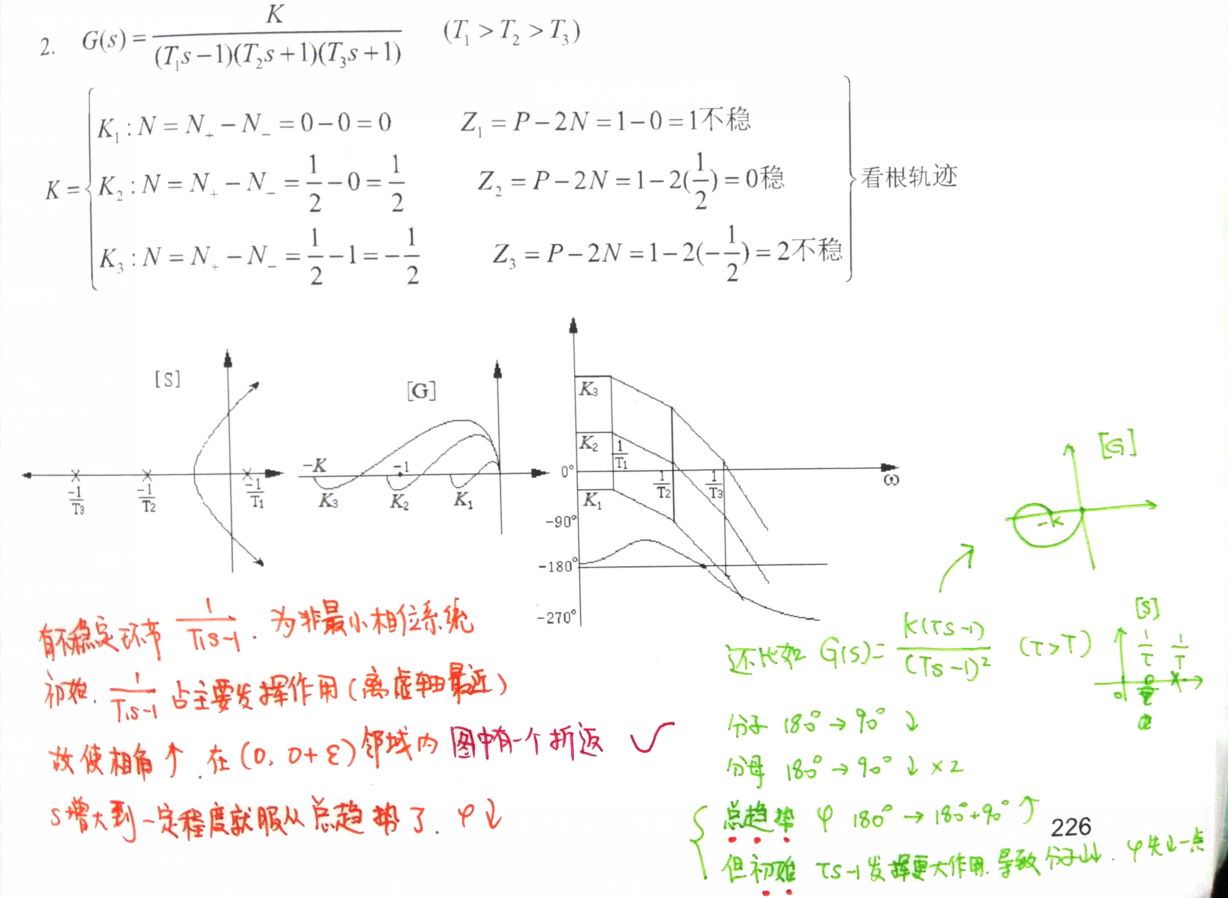 2. G(s) = K / (T₁s−1)(T₂s+1)(T₃s+1) (T₁ > T₂ > T₃)
K₁ : N = N₊ − N₋ = 0 − 0 = 0 Z₁ = P − 2N = 1 − 0 = 1不稳
K = K₂ : N = N₊ − N₋ = 1/2 − 0 = 1/2 Z₂ = P − 2N = 1 − 2(1/2) = 0稳 看根轨迹
K₃ : N = N₊ − N₋ = 1/2 − 1 = −1/2 Z₃ = P − 2N = 1 − 2(−1/2) = 2不稳
[S]
-1/T₃ -1/T₂ -1/T₁
[G]
-K -1
K₃ K₂ K₁
K₃
K₂ 1/T₁
0° 1/T₂ 1/T₃ ω
K₁
-90°
-180°
-270°
[G]
-K
有不稳定环节 1/(T₁s-1). 为非最小相位系统
初始. 1/(T₁s-1) 占主要发挥作用(离虚轴最近)
故使相角↑. 在(0, 0+ε)邻域内 图中有一个折返 ✓
s增大到一定程度就服从总趋势了. φ↓
还比如 G(s)= K(τs-1)/(Ts-1)² (τ>T)
[S]
1/τ 1/T
0
分子 180°→90° ↓
分母 180°→90° ↓ ×2
总趋势 φ 180°→180°+90° ↑
但初始 τs-1发挥更大作用. 导致分子↓↓. φ先↓一点
226